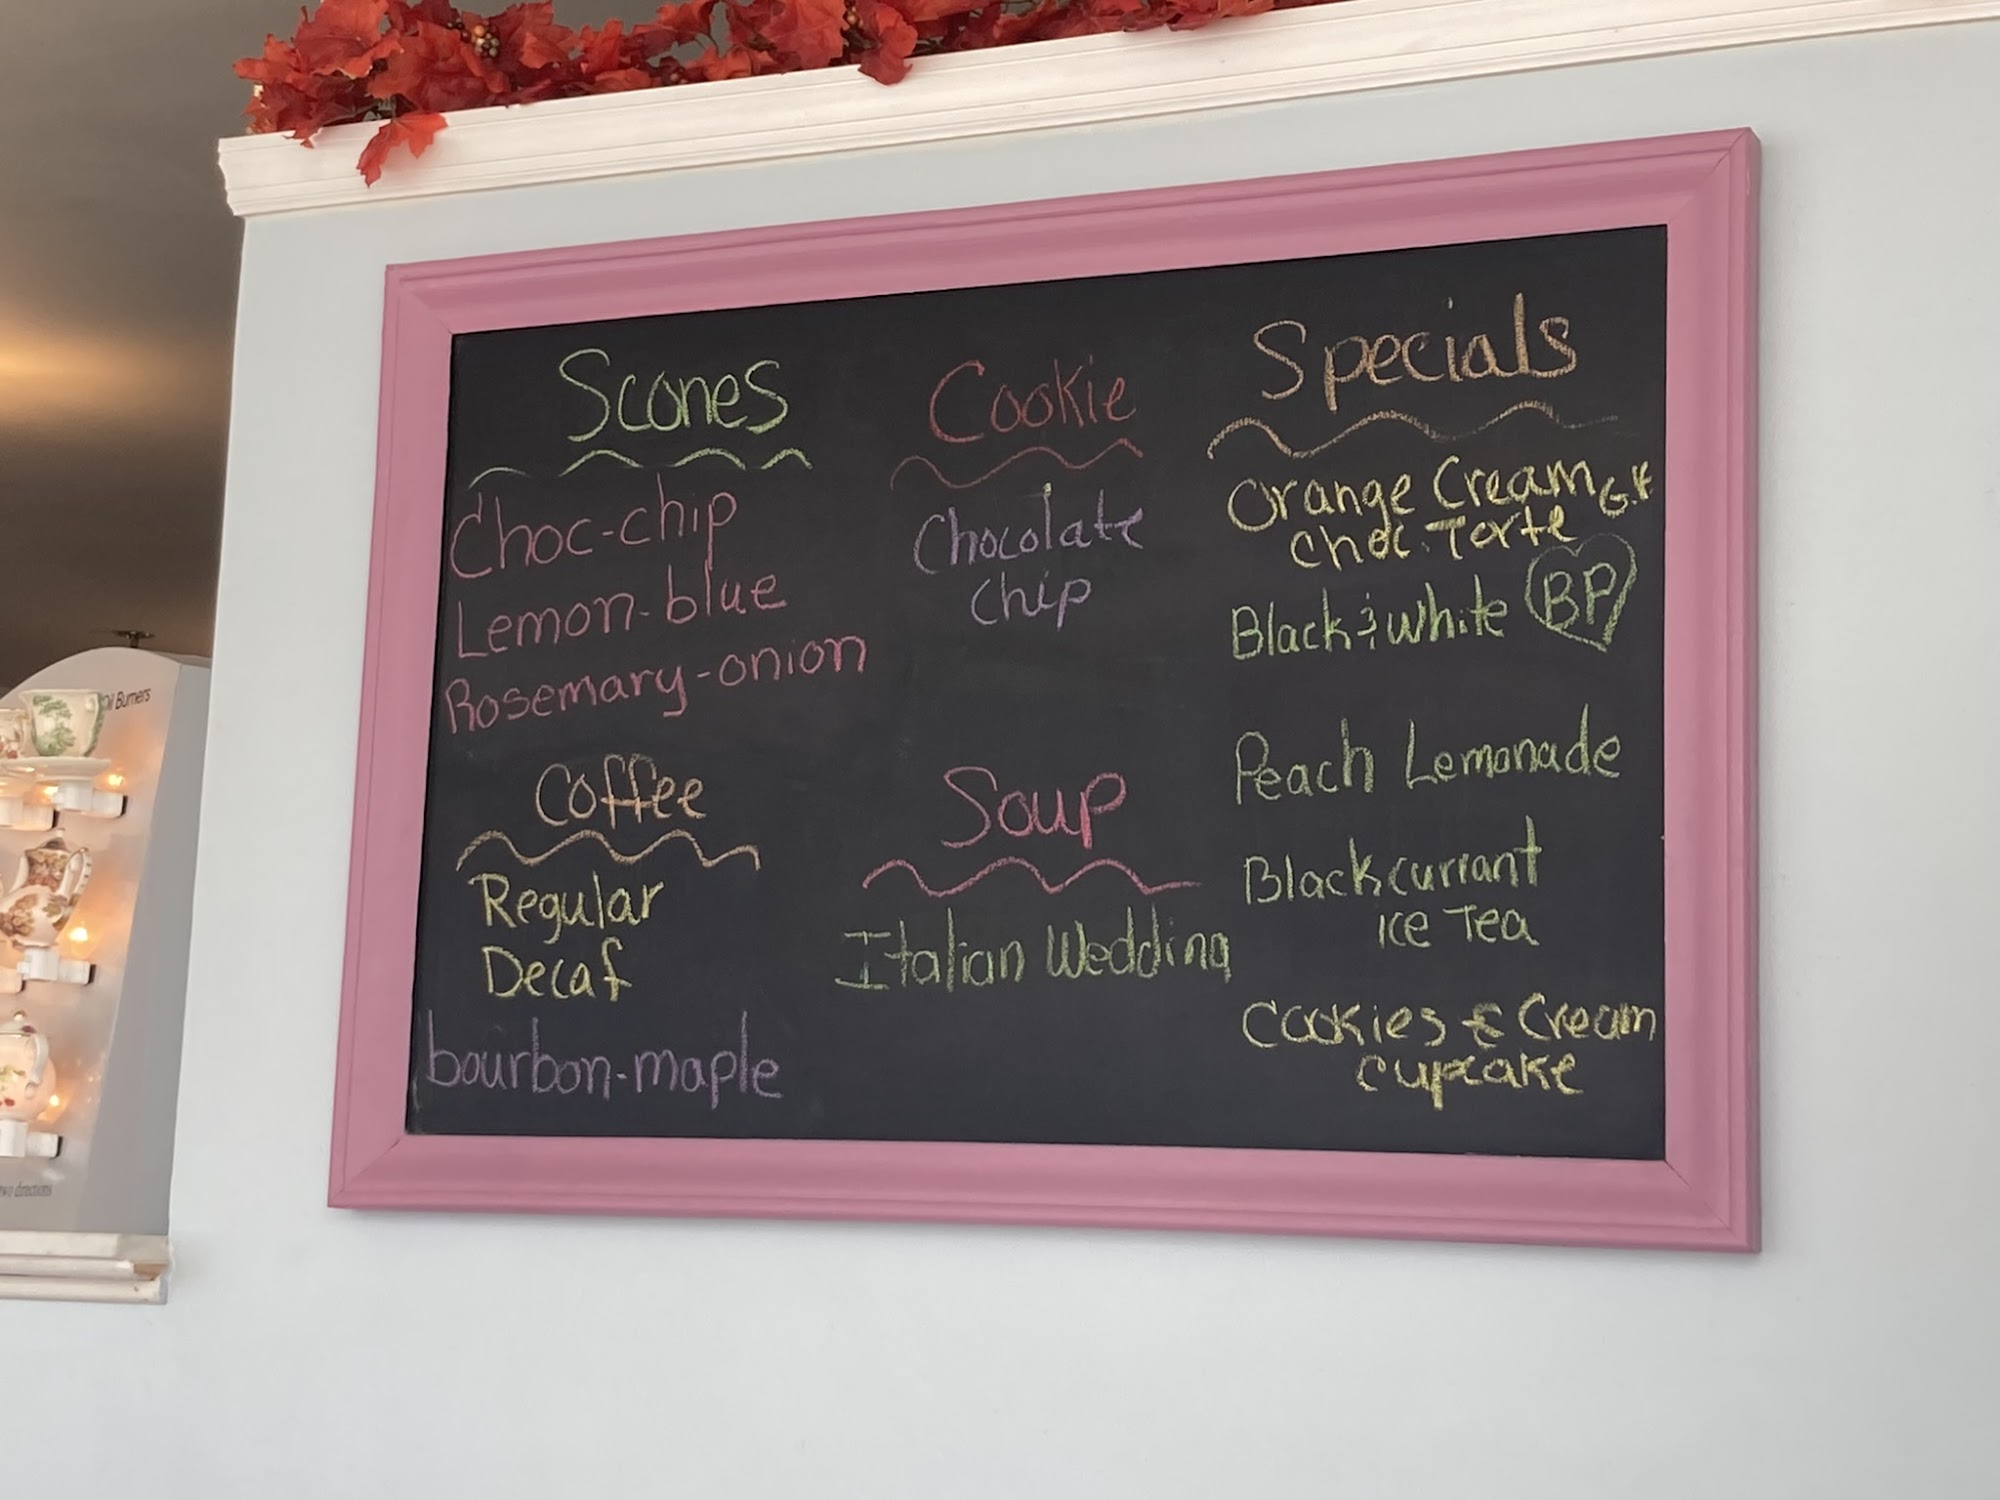 Scones
Choc-chip
Lemon-blue
Rosemary-onion
Coffee
Regular
Decaf
bourbon-maple
Cookie
Chocolate
Chip
Soup
Italian Wedding
Specials
Orange Cream G.F
Choc. Torte
Black & White BP
Peach Lemonade
Blackcurrant
Ice Tea
Cookies & Cream
Cupcake
Oil Burners
two directions